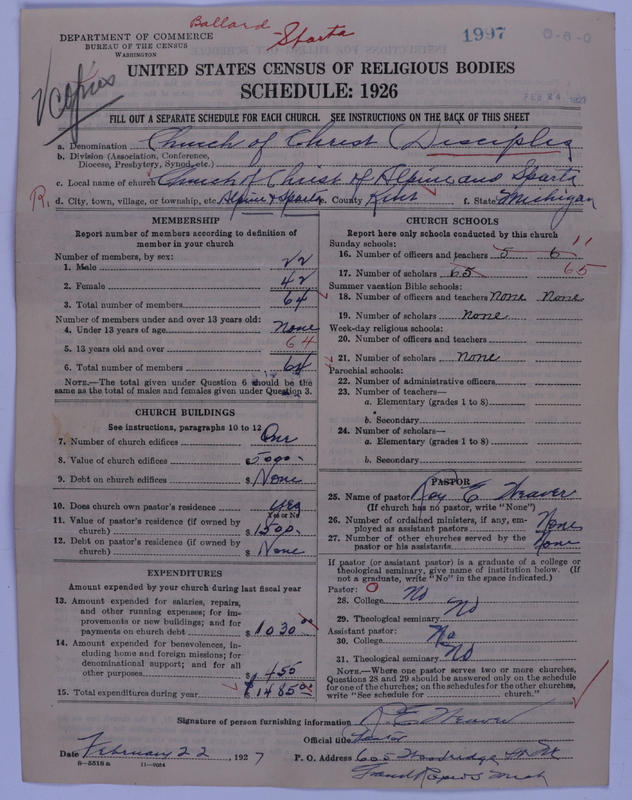 Ballard Sparta
1997
DEPARTMENT OF COMMERCE
BUREAU OF THE CENSUS
WASHINGTON
FEB 24 1927
UNITED STATES CENSUS OF RELIGIOUS BODIES
SCHEDULE: 1926
FILL OUT A SEPARATE SCHEDULE FOR EACH CHURCH. SEE INSTRUCTIONS ON THE BACK OF THIS SHEET
a. Denomination Church of Christ (Disciples
b. Division (Association, Conference,
Diocese, Presbytery, Synod, etc.)
c. Local name of church Church of Christ of Alpine and Sparta
R. d. City, town, village, or township, etc. Alpine & Sparta e. County Kent f. State Michigan
MEMBERSHIP
Report number of members according to definition of
member in your church
Number of members, by sex:
1. Male 22
2. Female 42
3. Total number of members 64
Number of members under and over 13 years old:
4. Under 13 years of age none
5. 13 years old and over 64
6. Total number of members 64
NOTE.—The total given under Question 6 should be the
same as the total of males and females given under Question 3.
CHURCH BUILDINGS
See instructions, paragraphs 10 to 12
7. Number of church edifices One
8. Value of church edifices $ 5000.
9. Debt on church edifices $ None
10. Does church own pastor's residence yes
Yes or No
11. Value of pastor's residence (if owned by
church) $ 1500.
12. Debt on pastor's residence (if owned by
church) $ None
EXPENDITURES
Amount expended by your church during last fiscal year
13. Amount expended for salaries, repairs,
and other running expenses; for im-
provements or new buildings; and for
payments on church debt $ 1030 00
14. Amount expended for benevolences, in-
cluding home and foreign missions; for
denominational support; and for all
other purposes $ 455
15. Total expenditures during year $ 1485 00
CHURCH SCHOOLS
Report here only schools conducted by this church
Sunday schools:
16. Number of officers and teachers 5 6 11
17. Number of scholars 65 65
Summer vacation Bible schools:
18. Number of officers and teachers None None
19. Number of scholars none
Week-day religious schools:
20. Number of officers and teachers
21. Number of scholars none
Parochial schools:
22. Number of administrative officers
23. Number of teachers—
a. Elementary (grades 1 to 8)
b. Secondary
24. Number of scholars—
a. Elementary (grades 1 to 8)
b. Secondary
PASTOR
25. Name of pastor Roy E Weaver
(If church has no pastor, write "None")
26. Number of ordained ministers, if any, em-
ployed as assistant pastors None
27. Number of other churches served by the
pastor or his assistants None
If pastor (or assistant pastor) is a graduate of a college or
theological seminary, give name of institution below. (If
not a graduate, write "No" in the space indicated.)
Pastor: O
28. College No
29. Theological seminary No
Assistant pastor:
30. College No
31. Theological seminary No
NOTE.—Where one pastor serves two or more churches,
Questions 28 and 29 should be answered only on the schedule
for one of the churches; on the schedules for the other churches,
write "See schedule for church."
Signature of person furnishing information R. E Weaver
Official title Pastor
Date February 22, 1927 P. O. Address 605 Woodridge
Grand Rapids Mich
8—5518a 11—9024